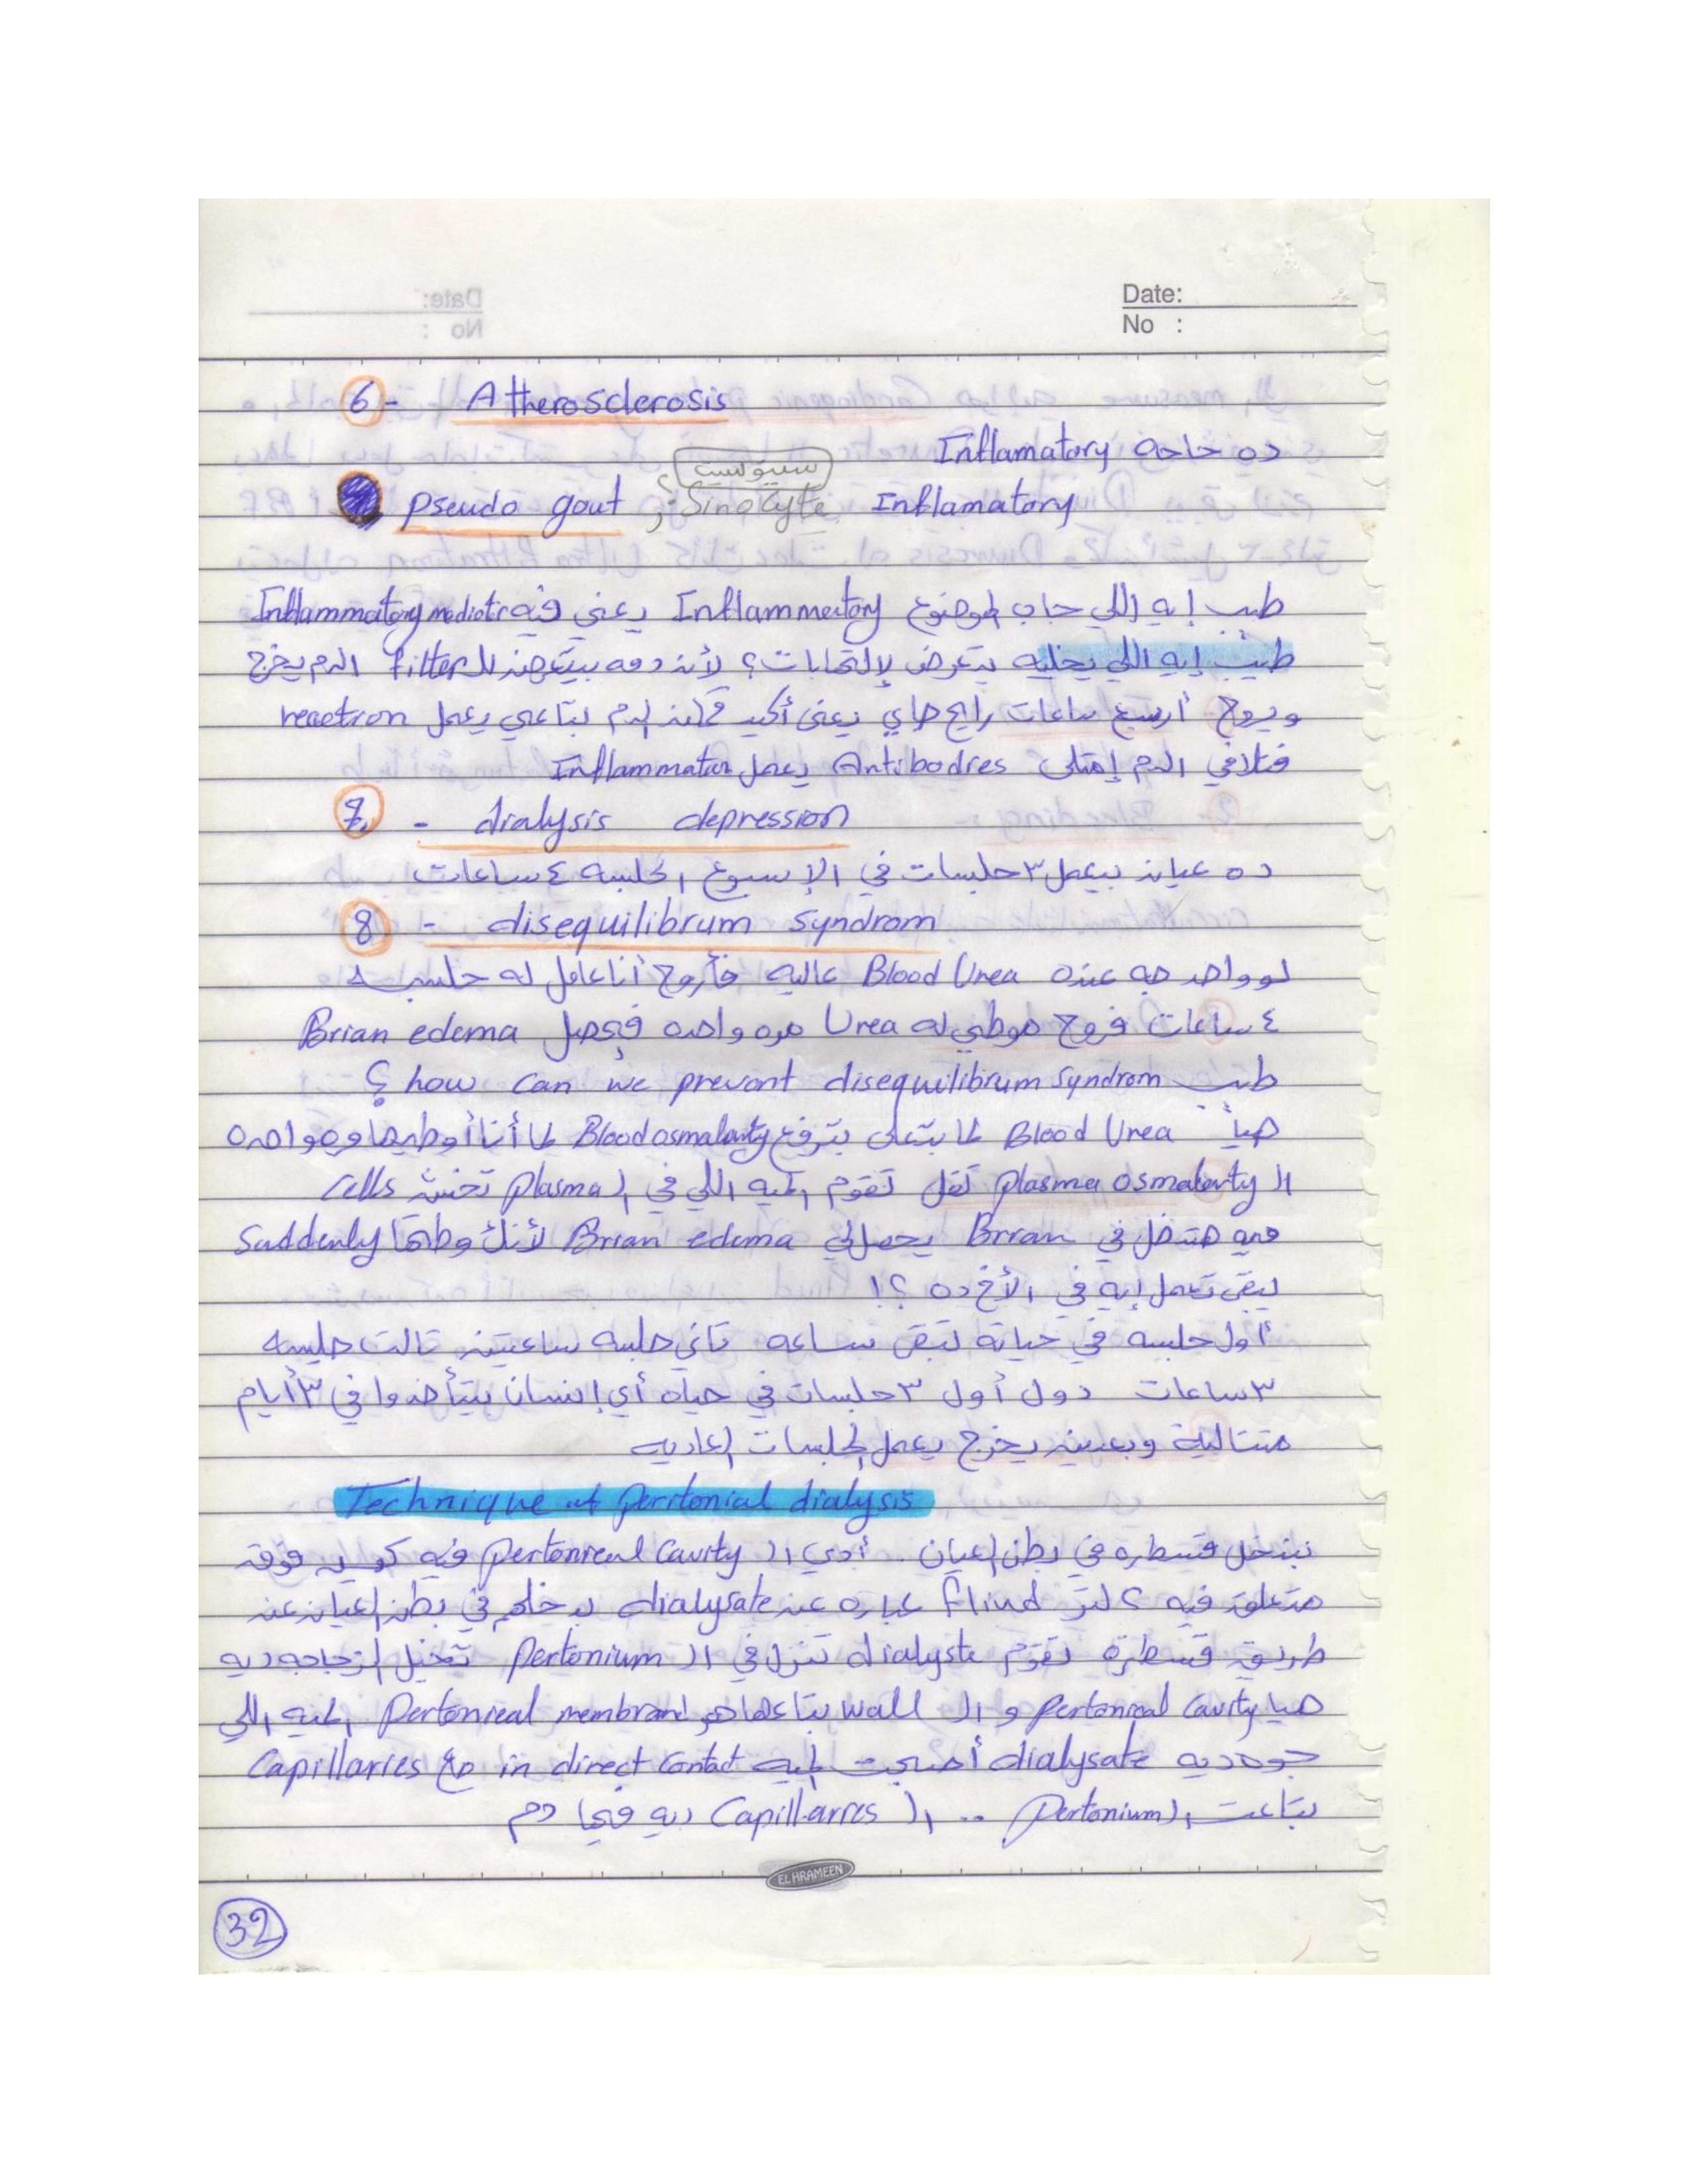 Date:
No :
6 - Atherosclerosis
ده حاجه Inflamatory
سينوسيت
pseudo gout ; Sinocyte Inflamatory
طب إيه اللي جاب لموضوع Inflammeitory يعني فيه Inflammatory mediatior
طيب إيه اللي يخليه يتعرض لإلتهابات؟ لأنه دمه بيتعرض للـ filter الدم يخرج
ويروح أربع ساعات رايح جاي يعني أكيد الدم بتاعي يعمل reaction
فتلاقي الدم إمتلى Antibodies يعمل Inflammation
7 - dialysis depression
ده عيان بيعمل ٣ جلسات في الإسبوع الجلسه ٤ ساعات
8 - disequilibrum syndrom
لو واحد جه عنده Blood Urea عاليه فأروح أنا عامل له جلسه
٤ ساعات فروح موطي له Urea مره واحده فيحصل Brian edema
طب how can we prevent disequilibrum syndrom ؟
Blood Urea لما بتعلى بترفع Blood osmalarity لما أنا أوطيها مره واحده
الـ plasma osmalarity تقل تقوم الميه اللي في الـ plasma تخش cells
ميه هتدخل في Brian يحصل لي Brian edema لأنك وطيتها suddenly
يبقى تعمل إيه في الأخ ده ؟!
أول جلسه في حياته تبقى ساعه تاني جلسه ساعتين تالت جلسه
٣ ساعات دول أول ٣ جلسات في حياه أي إنسان بيتأخدوا في ٣ أيام
متتالية وبعدين يخرج يعمل الجلسات العاديه
Technique of peritonial dialysis
بندخل قسطره في بطن العيان . أدي الـ pertonieal cavity فيه كيس فوقه
متعلق فيه ٢ لتر fliud عباره عن dialysate بدخلهم في بطن العيان عن
طريق قسطرة تقوم dialyste تنزل في الـ pertonium تخيل الزجاجه ديه
هيا pertoneal cavity و الـ wall بتاعها هو pertonieal membrand الميه اللي
جوه ديه dialysate أصبحت الميه in direct contact مع Capillaries
بتاعت الـ pertonium .. الـ Capillarres ديه فيها دم
EL HRAMEEN
32